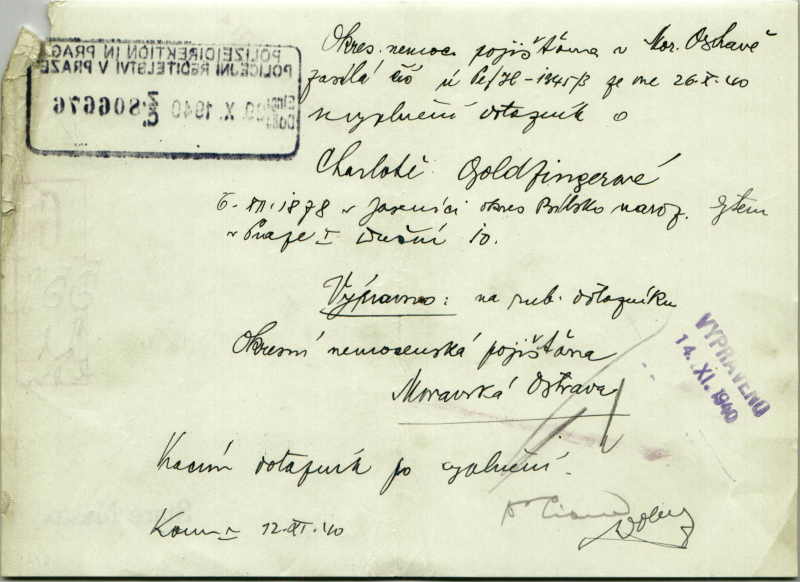 POLIZEIDIREKTION IN PRAG
POLICEJNÍ ŘEDITELSTVÍ V PRAZE
29. X. 1940
806676
Okres. nemoc. pojišťovna v Mor. Ostravě
zasílá ze dne 26.X.40
k vyplnění dotazník o
Charlotě Goldfingerové
6.XII.1878 v Jasenici okres Bílsko naroz.
v Praze I Dušní 10.
Výpravno: na rub. dotazníku
Okresní nemocenská pojišťovna
Moravská Ostrava
VYPRAVENO
14. XI. 1940
Vracím dotazník po vyplnění.
12.XI.40